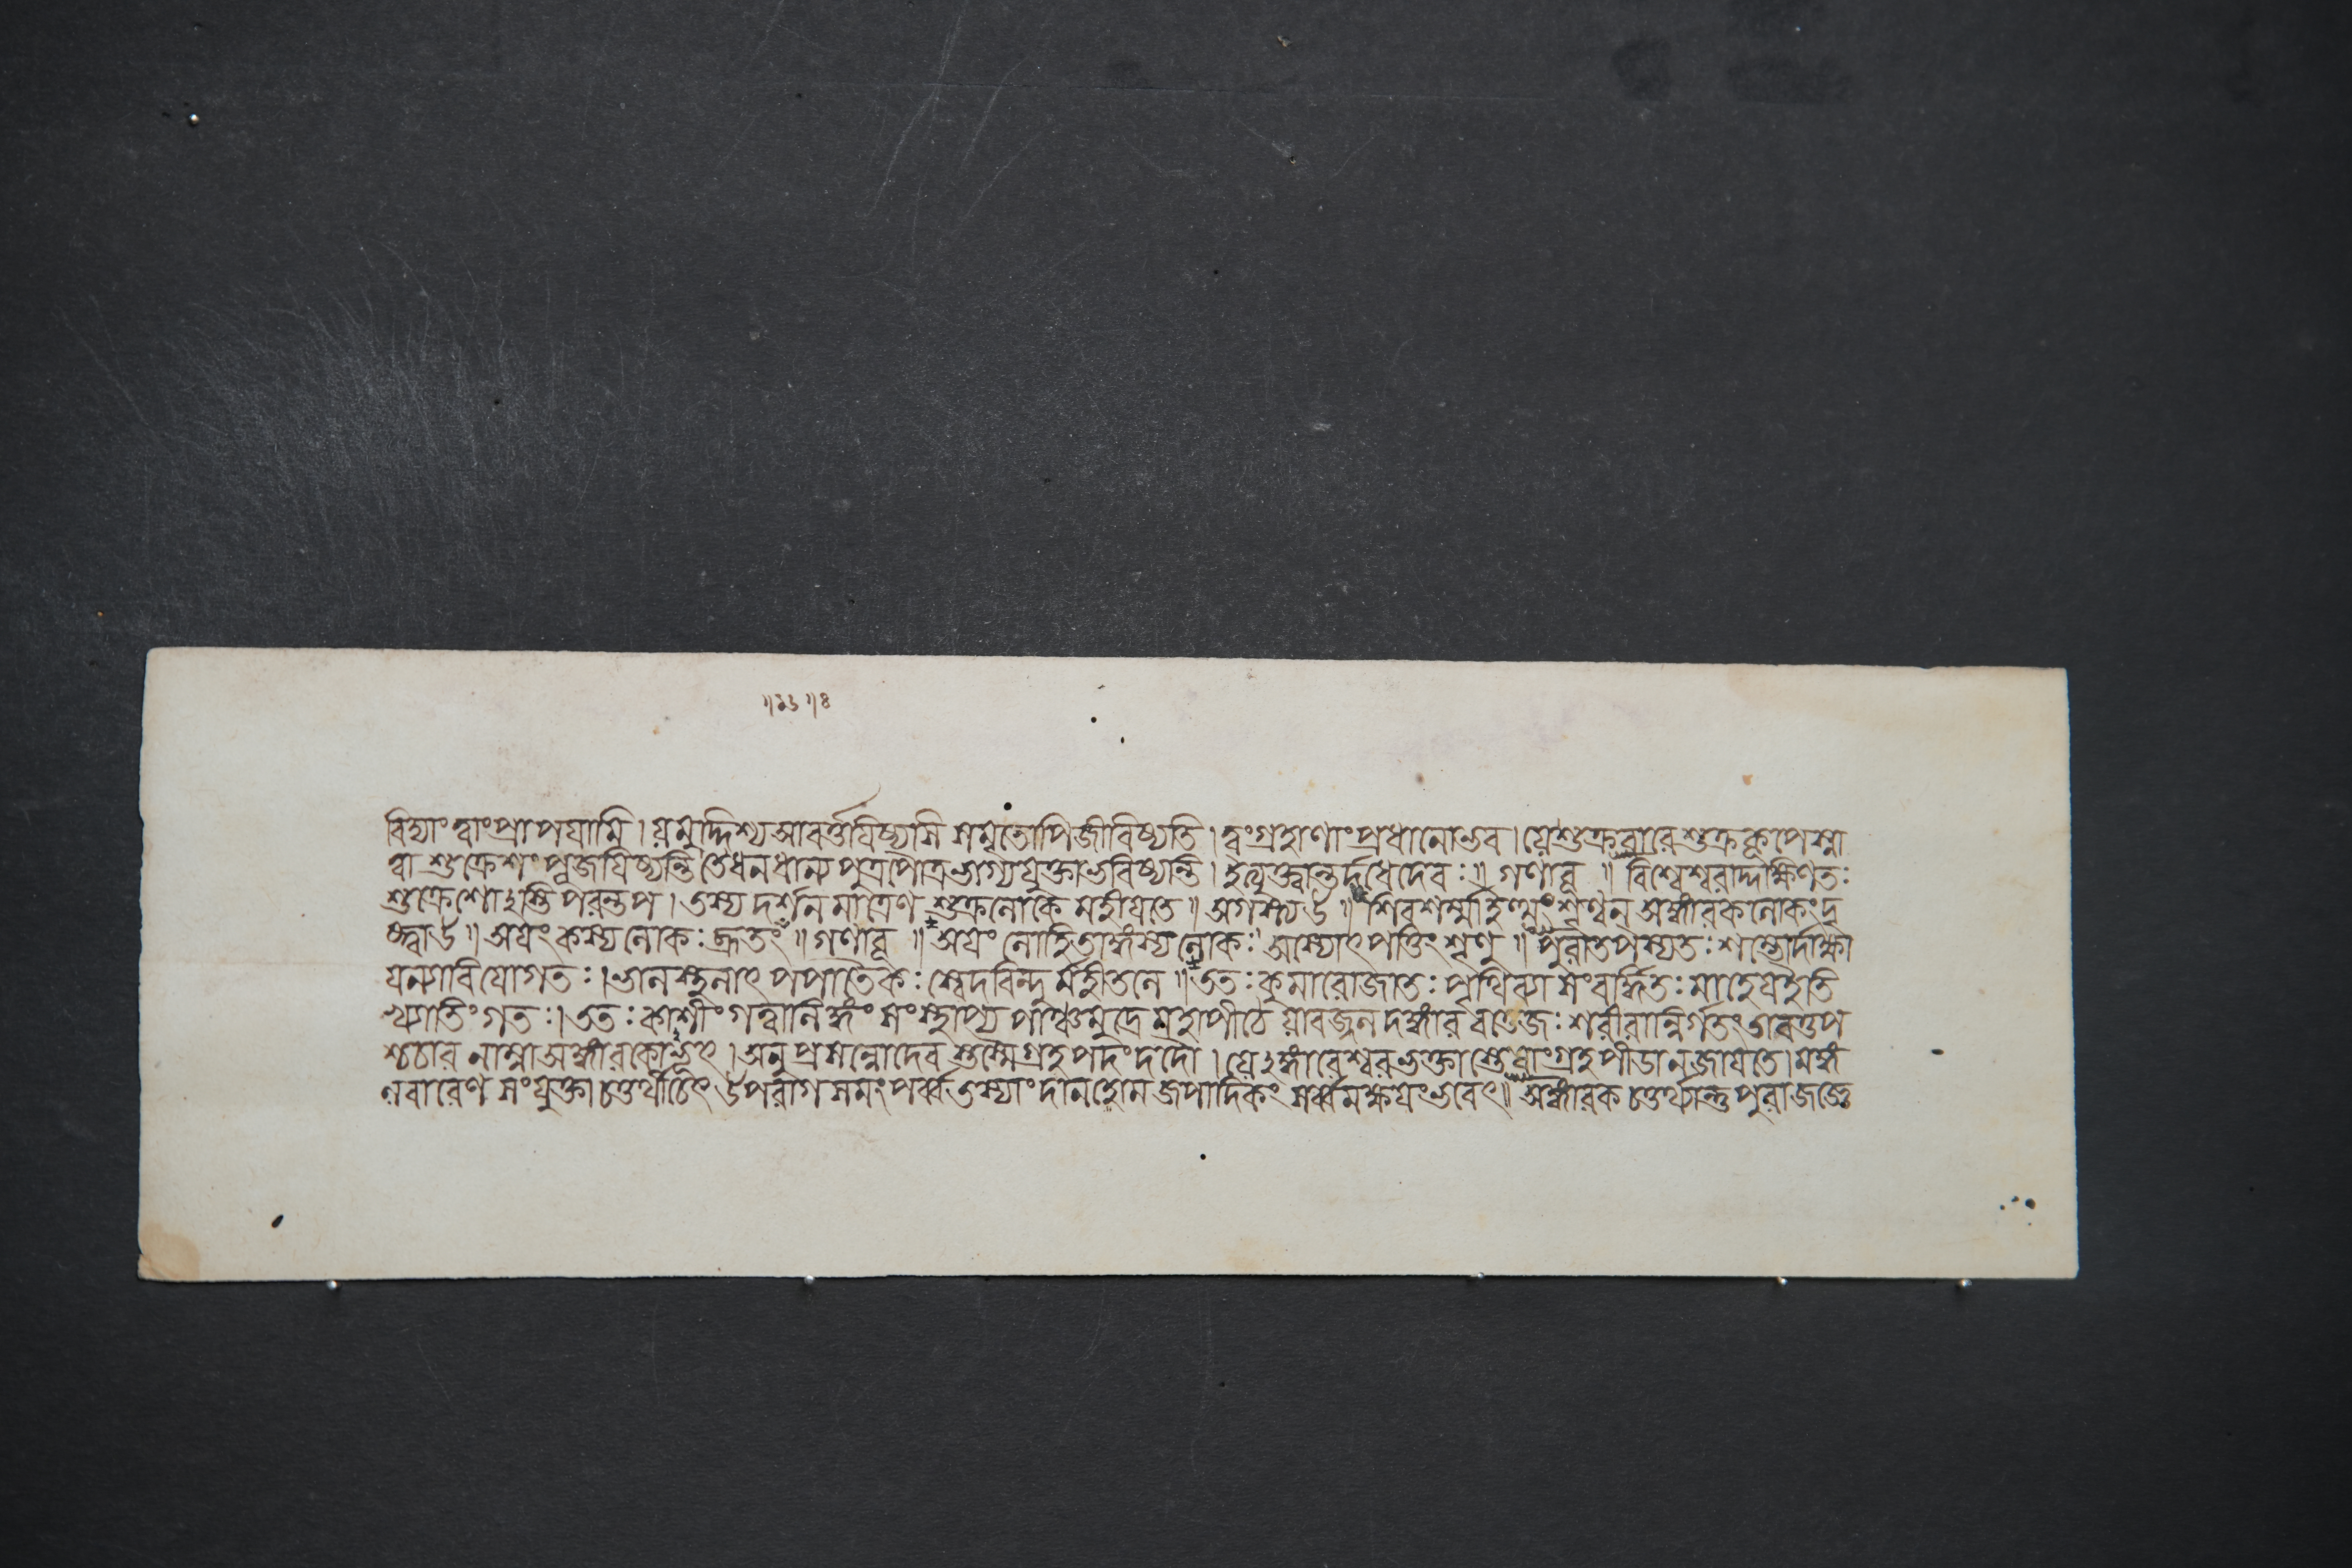 বিদ্যাং ত্বাং প্রাপযামি । যমুদ্দিশ্য আবর্ত্তযিষ্যসি স মৃতোপি জীবিষ্যতি । ত্বং গ্রহাণাং প্রধানো ভব । যে শুক্রবারে শুক্রকূপে স্না
ত্বা শুক্রেশং পূজযিষ্যন্তি তে ধনধান্য পুত্রপৌত্রভাগ্যযুক্তা ভবিষ্যন্তি । ইত্যুক্ত্বান্তর্দধে দেবঃ ॥ গণাবূ ॥ বিশ্বেশ্বরাদ্দক্ষিণতঃ
শুক্রেশোঽস্তি পরন্তপ । তস্য দর্শন মাত্রেণ শুক্রলোকে মহীযতে ॥ অগস্ত্য উ ॥ শিবশর্ম্মা শৃণ্বন্ অঙ্গারকলোকং দৃ
ষ্ট্বা উ ॥ অযং কস্য লোকঃ ॥ গণাবূ ॥ অযং লোহিতাঙ্গস্য লোকঃ । অস্যোৎপত্তিং শৃণু ॥ পুরা তপস্যতঃ শম্ভোর্দাক্ষা
যণ্যা বিযোগতঃ । ভালস্থলাৎ পপাতৈকঃ স্বেদবিন্দুর্মহীতলে ॥ ততঃ কুমারো জাতঃ পৃথিব্যা সংবর্দ্ধিতঃ মাহেয ইতি
খ্যাতিং গতঃ । ততঃ কাশীং গত্বা লিঙ্গং সংস্থাপ্য পাঞ্চমুদ্রে মহাপীঠে যাবজ্জ্বলদঙ্গার বত্তেজঃ শরীরান্নির্গতং তাবত্তপ
শ্চচার নাম্না অঙ্গারকোঽভূৎ । অনু প্রসন্নো দেব স্তস্মৈ গ্রহপদং দদৌ । যেঽঙ্গারেশ্বরভক্তা স্তেষাং গ্রহপীডা ন জাযতে । মঙ্গ
লবারেণ সংযুক্তা চতুর্থী চেৎ উপরাগ সমং পর্ব্ব তস্যাং দান হোম জপাদিকং সর্ব্বমক্ষযং ভবেৎ ॥ অঙ্গারক চতুর্থ্যান্তু পুরা জজ্ঞে